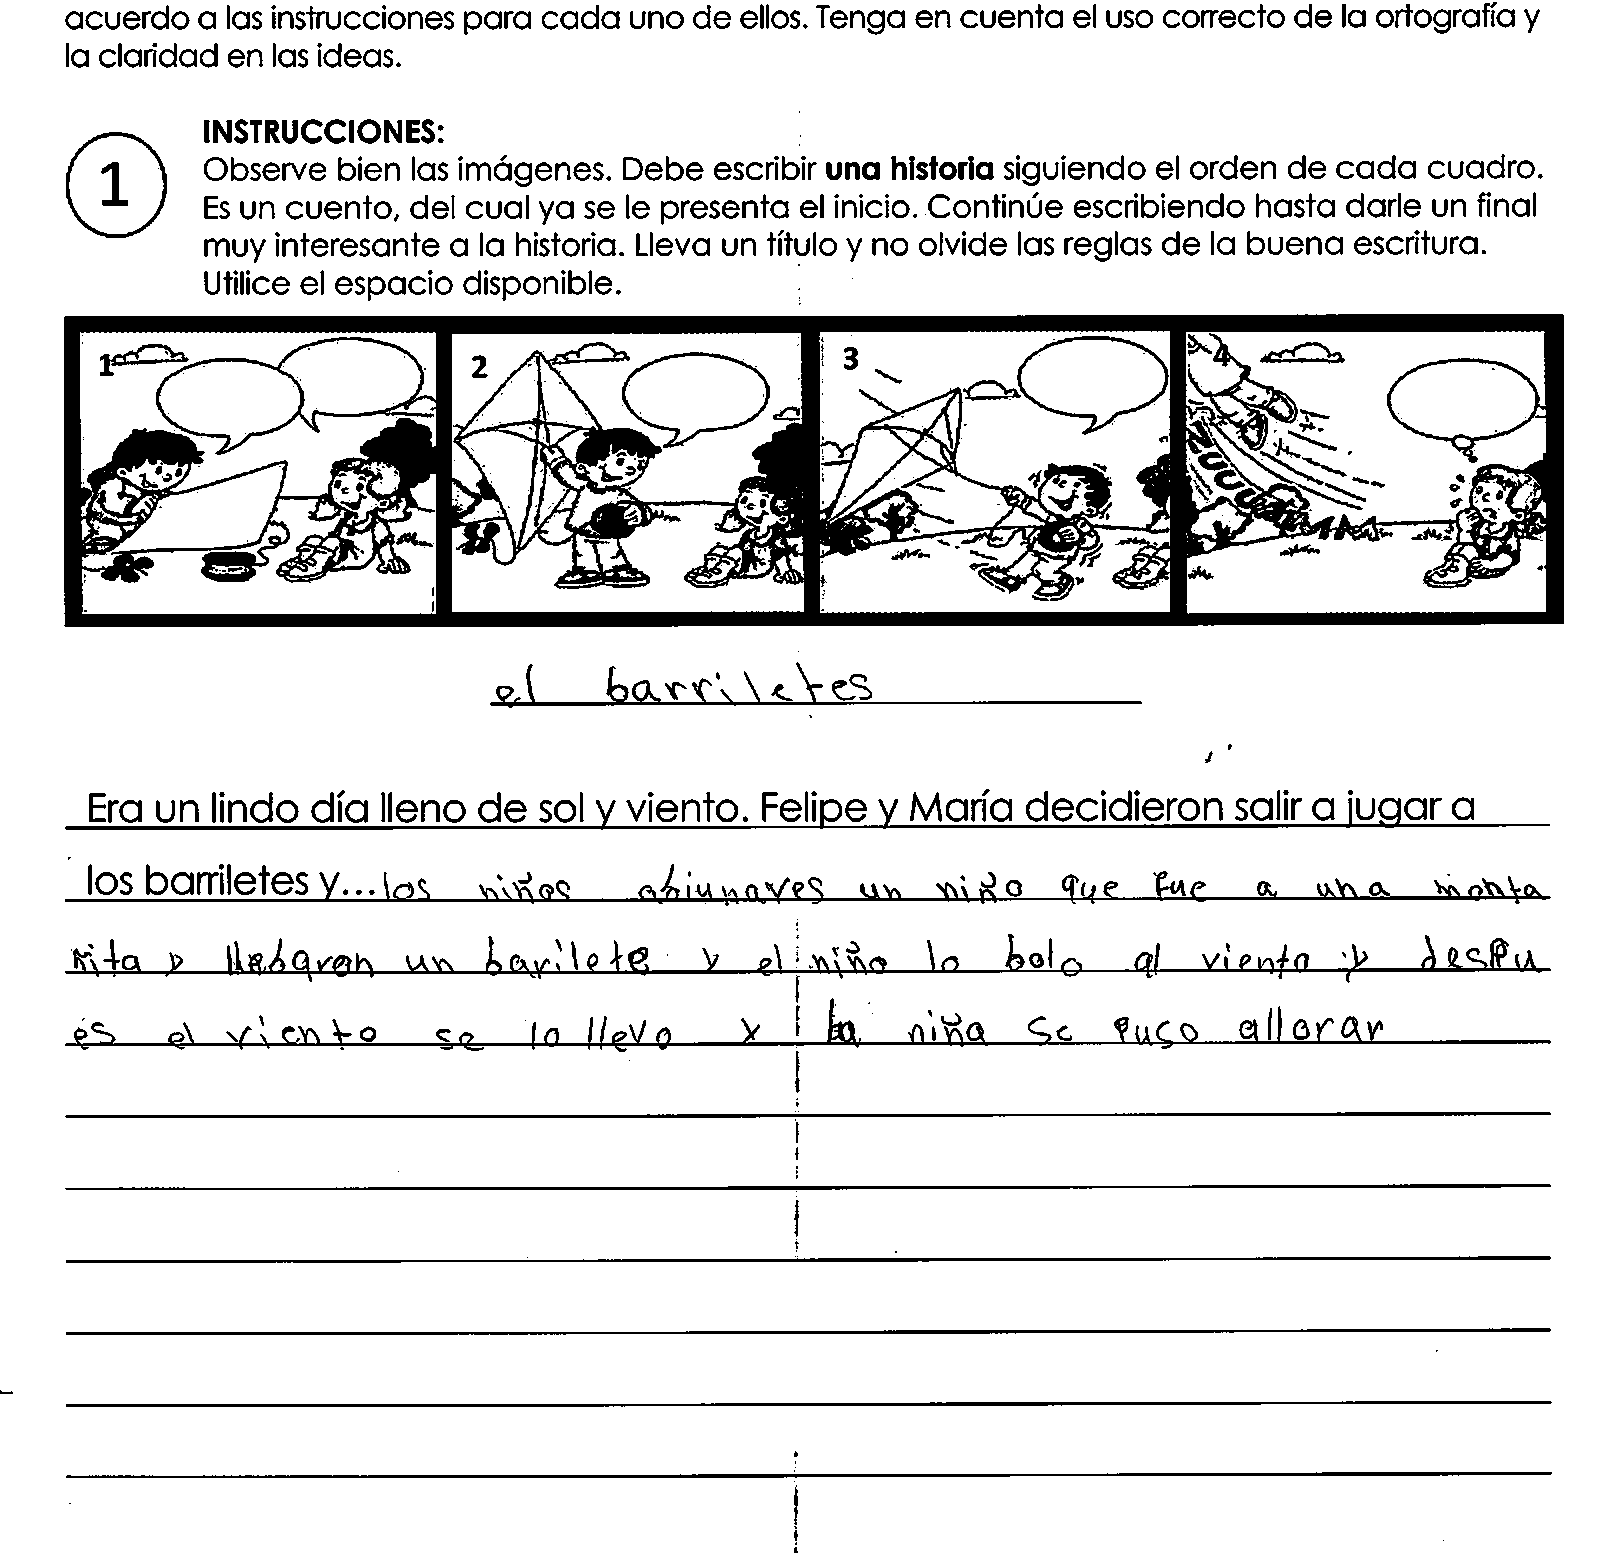 acuerdo a las instrucciones para cada uno de ellos. Tenga en cuenta el uso correcto de la ortografía y
la claridad en las ideas.
1
INSTRUCCIONES:
Observe bien las imágenes. Debe escribir una historia siguiendo el orden de cada cuadro.
Es un cuento, del cual ya se le presenta el inicio. Continúe escribiendo hasta darle un final
muy interesante a la historia. Lleva un título y no olvide las reglas de la buena escritura.
Utilice el espacio disponible.
1 2 3 4
el barriletes
Era un lindo día lleno de sol y viento. Felipe y María decidieron salir a jugar a
los barriletes y...los niños abiunaves un niño que fue a una monta
ñita y llebaron un barilete y el niño lo bolo al viento y despu
es el viento se lo llevo y la niña se puso allorar